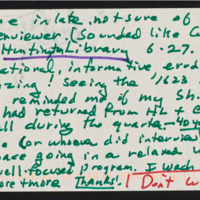 e in late, not sure of
erviewer (sounded like C
Huntington Library 6-27.
ational, informative, erud
zing! seeing the 1623
reminded me of my Sh
had returned from HL &
ll during the quarter - 40 yr
(or whoever did interview
pace going in a relaxed w
ell-focused program. I wach
ore & more Thanks! Don't w